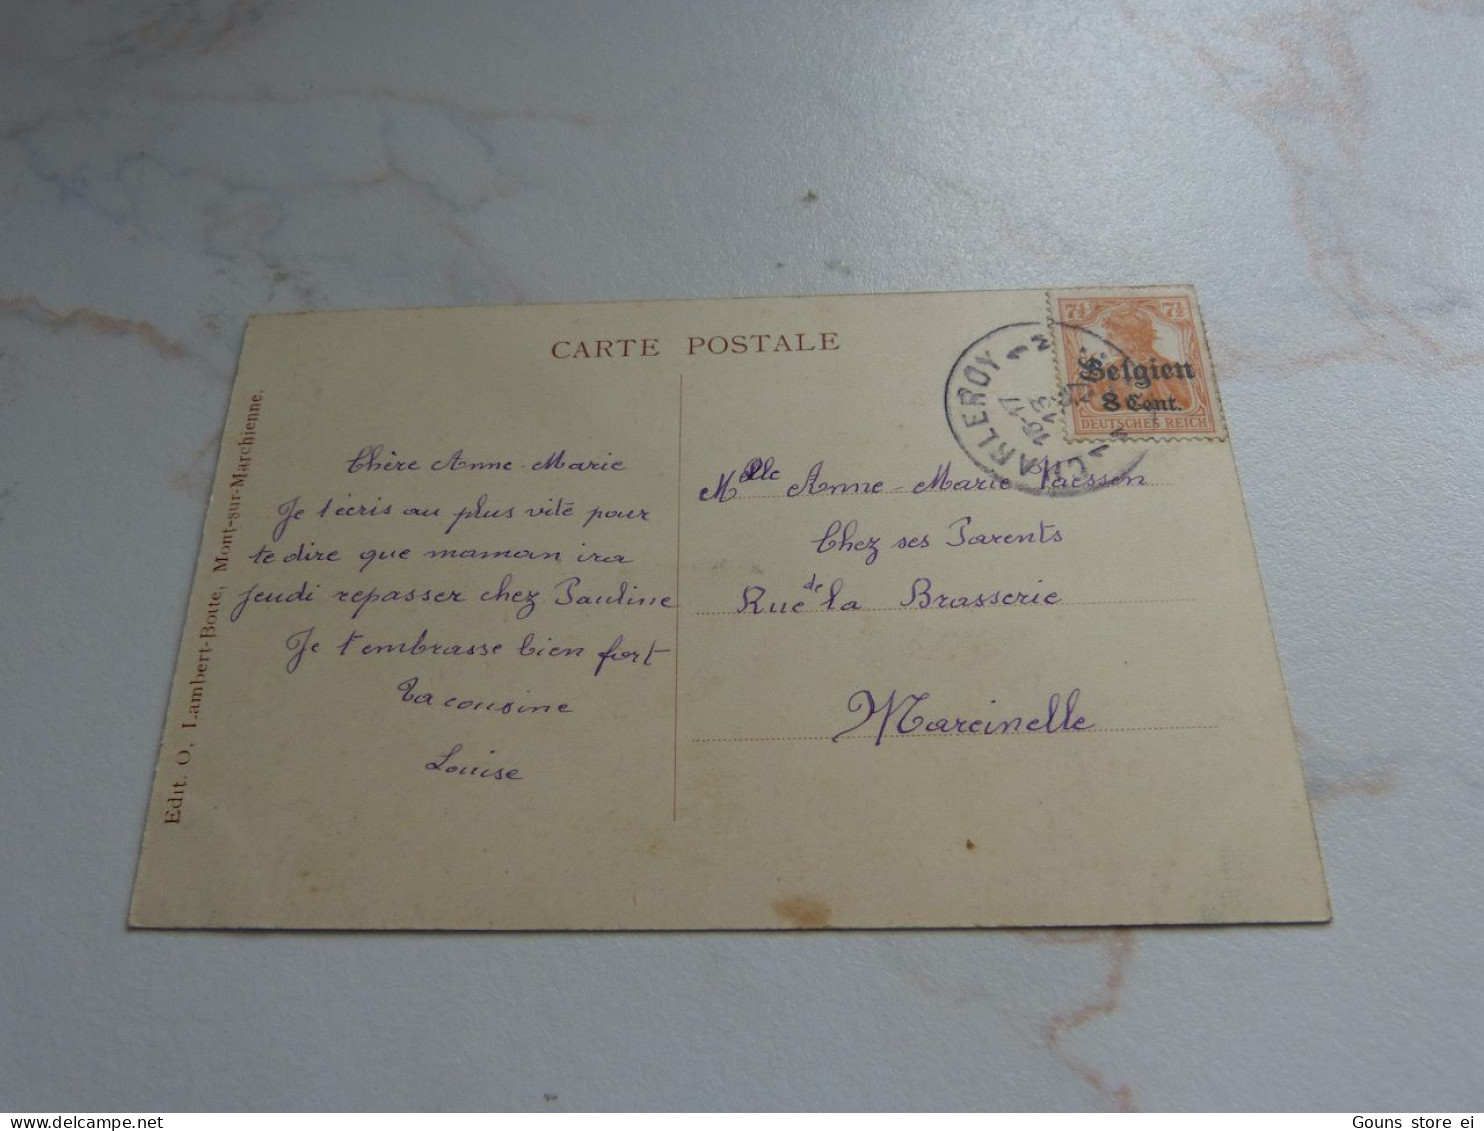 CARTE POSTALE
Edit. O. Lambert-Botte, Mont-sur-Marchienne.
Chère Anne-Marie
Je t'écris au plus vite pour
te dire que maman ira
jeudi repasser chez Pauline
Je t'embrasse bien fort
Ta cousine
Louise
7½ 7½
Belgien
8 Cent.
DEUTSCHES REICH
CHARLEROY 1
Melle Anne-Marie
Chez ses Parents
Rue de la Brasserie
Marcinelle
Gouns store ei